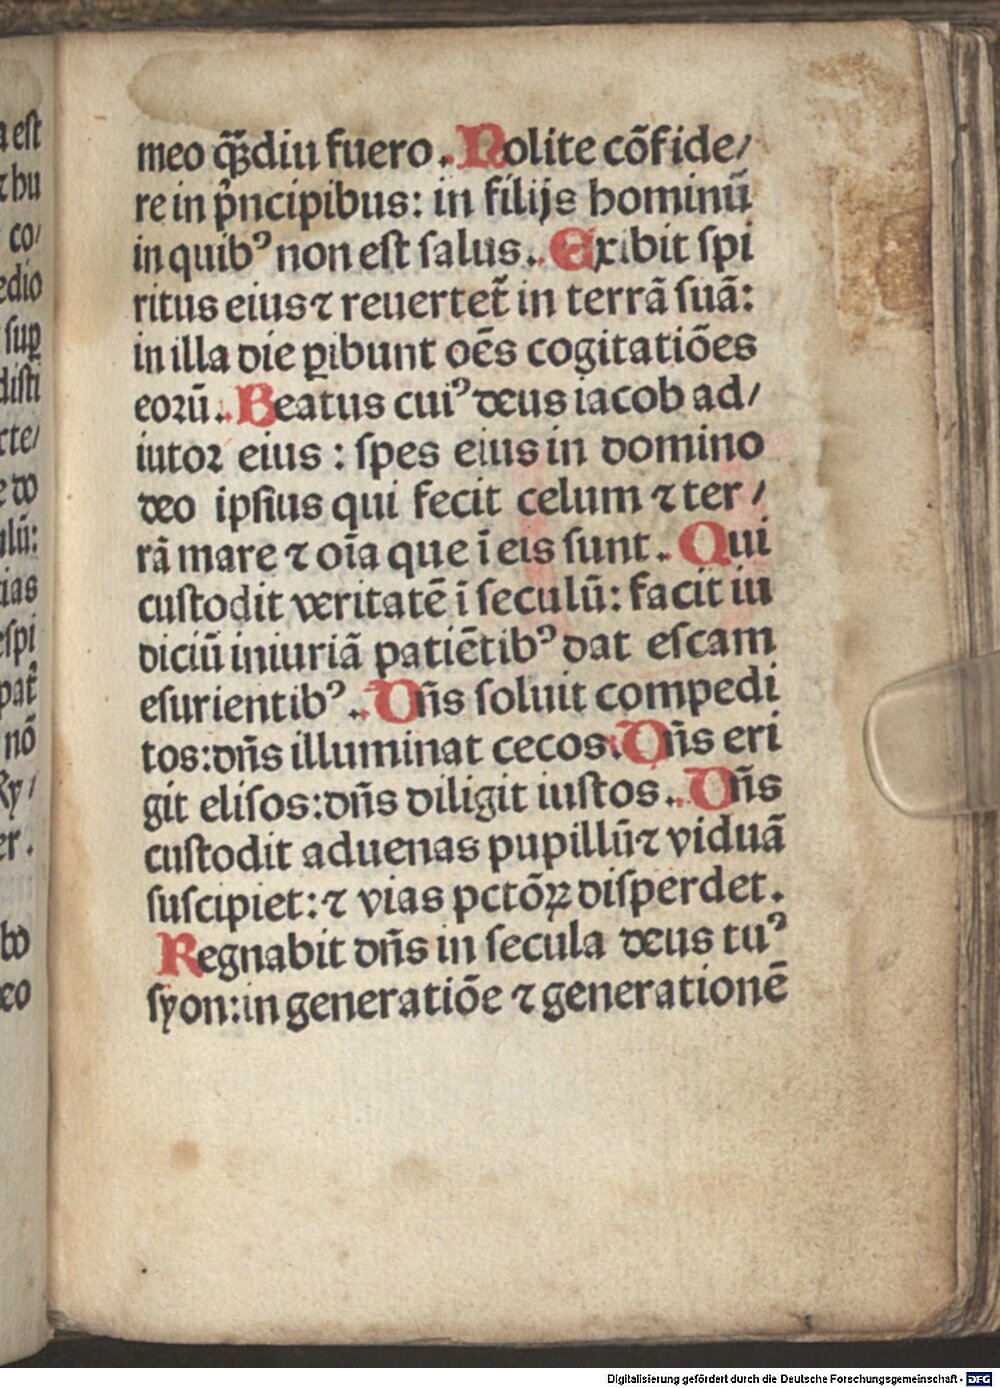 a est
⁊ hu
co/
edio
suꝑ
disti
rte/
e do
ulū:
ias
espi
pat̃
nō
Ry/
er.
bo
eo
meo qͣ̃diu fuero. Nolite cōfide/
re in pͥncipibus: in filijs hominū
in quibꝰ non est salus. Exibit spi
ritus eius ⁊ reuertet̃ in terrā suā:
in illa die ꝑibunt oēs cogitatiōes
eoꝛū. Beatus cuiꝰ deus iacob ad/
iutoꝛ eius: spes eius in domino
deo ipsius qui fecit celum ⁊ ter/
rā mare ⁊ oīa que ī eis sunt. Qui
custodit veritatē ī seculū: facit iu
diciū iniuriā patiētibꝰ dat escam
esurientibꝰ. Dñs soluit compedi
tos: dñs illuminat cecos. Dñs eri
git elisos: dñs diligit iustos. Dñs
custodit aduenas pupillū ⁊ viduā
suscipiet: ⁊ vias pctōꝝ disperdet.
Regnabit dñs in secula deus tuꝰ
syon: in generatiōe ⁊ generationē
Digitalisierung gefördert durch die Deutsche Forschungsgemeinschaft - DFG